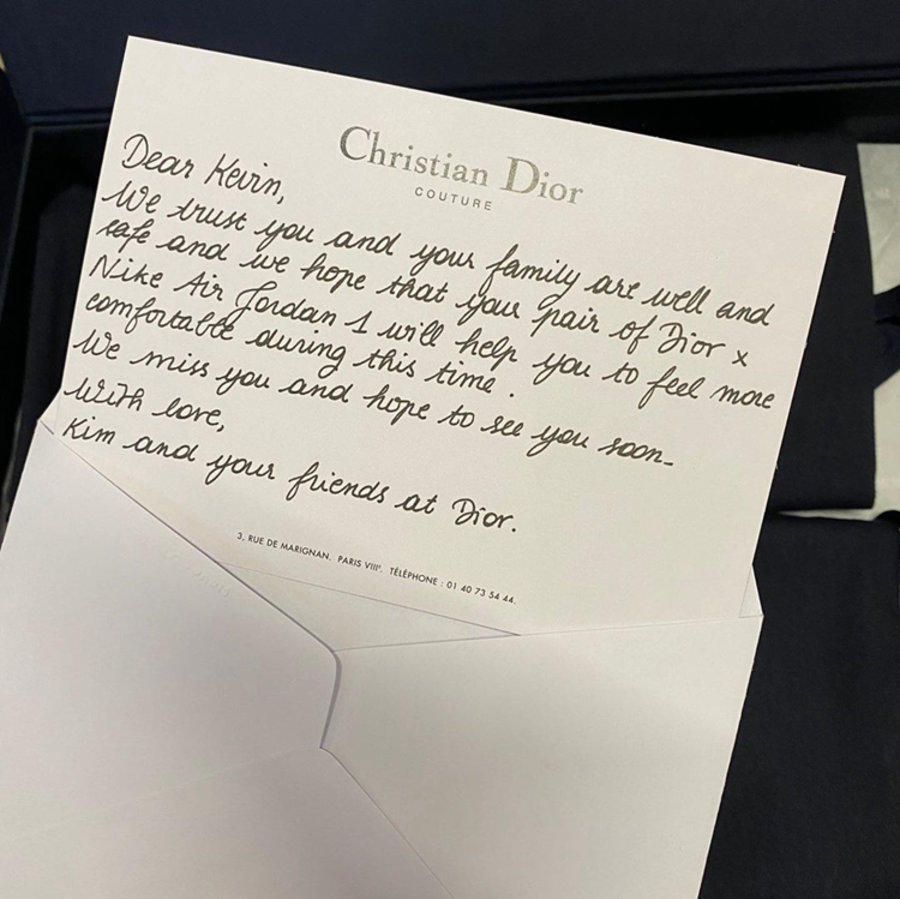 Christian Dior
COUTURE
Dear Kevin,
We trust you and your family are well and
safe and we hope that your pair of Dior x
Nike Air Jordan 1 will help you to feel more
comfortable during this time.
We miss you and hope to see you soon_
With love,
Kim and your friends at Dior.
3, RUE DE MARIGNAN. PARIS VIIIᵉ. TÉLÉPHONE : 01 40 73 54 44.